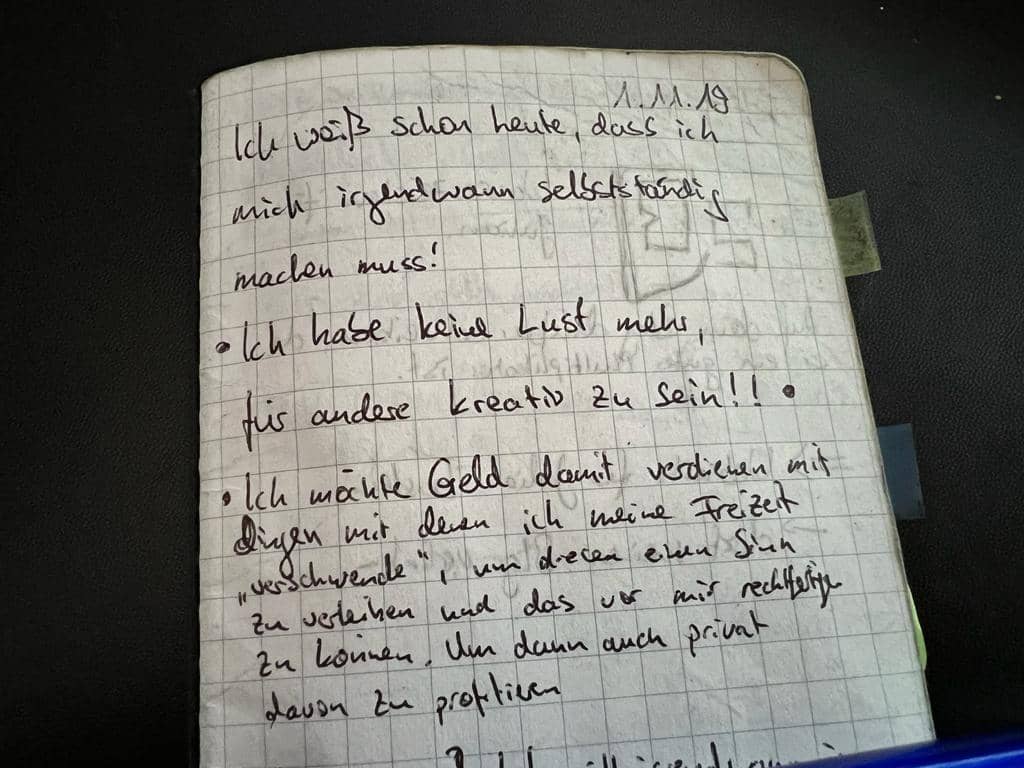 1.11.19
Ich weiß schon heute, dass ich
mich irgendwann selbstständig
machen muss!
• Ich habe keine Lust mehr,
für andere kreativ zu sein!! •
• Ich möchte Geld damit verdienen mit
Dingen mit denen ich meine Freizeit
„verschwende“, um diesen einen Sinn
zu verleihen und das vor mir rechtfertigen
zu können. Um dann auch privat
davon zu profitieren